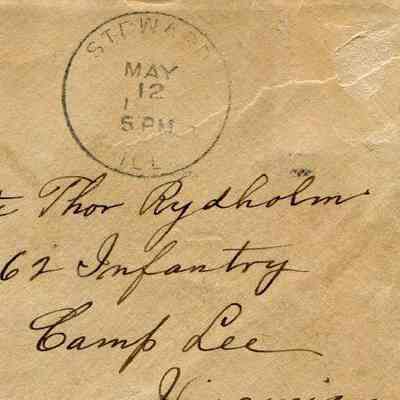 STEWART
MAY
12
5 PM
ILL
Thor Rydholm
62 Infantry
Camp Lee
Virginia